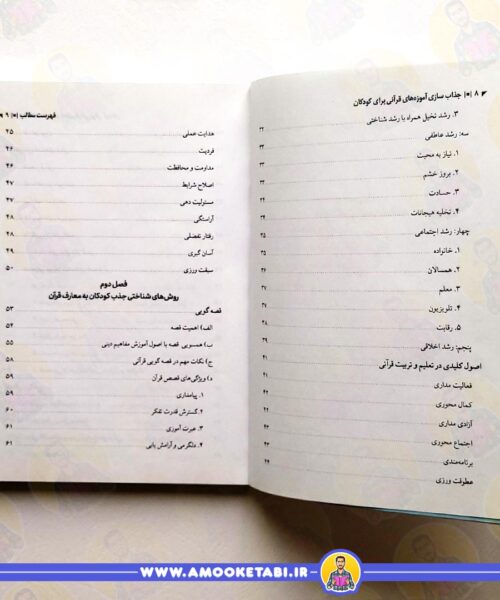 ۸ |●| جذاب سازی آموزه‌های قرآنی برای کودکان
۳. رشد تخیل همراه با رشد شناختی
سه: رشد عاطفی
۱. نیاز به محبت
۲. بروز خشم
۳. حسادت
۴. تخلیه هیجانات
چهار: رشد اجتماعی ۳۵
۱. خانواده ۳۵
۲. همسالان
۳. معلم
۴. تلویزیون
۵. رقابت
پنجم: رشد اخلاقی
اصول کلیدی در تعلیم و تربیت قرآنی ۴۱
فعالیت مداری ۴۱
کمال محوری
آزادی مداری
اجتماع محوری
برنامه‌مندی
عطوفت ورزی ۴۴
فهرست مطالب |●| ۹
هدایت عملی ۴۵
فردیت ۴۶
مداومت و محافظت ۴۶
اصلاح شرایط ۴۷
مسئولیت دهی ۴۷
آراستگی ۴۸
رفتار تفضلی ۴۸
آسان گیری ۴۹
سبقت ورزی ۵۰
فصل دوم
روش‌های شناختی جذب کودکان به معارف قرآن
قصه گویی ۵۳
الف) اهمیت قصه ۵۴
ب) همسویی قصه با اصول آموزش مفاهیم دینی ۵۵
ج) نکات مهم در قصه گویی قرآنی ۵۸
د) ویژگی‌های قصص قرآن ۵۹
۱. پیامداری ۵۹
۲. گسترش قدرت تفکر ۶۰
۳. عبرت آموزی ۶۱
۴. دلگرمی و آرامش یابی ۶۱
WWW.AMOOKETABI.IR